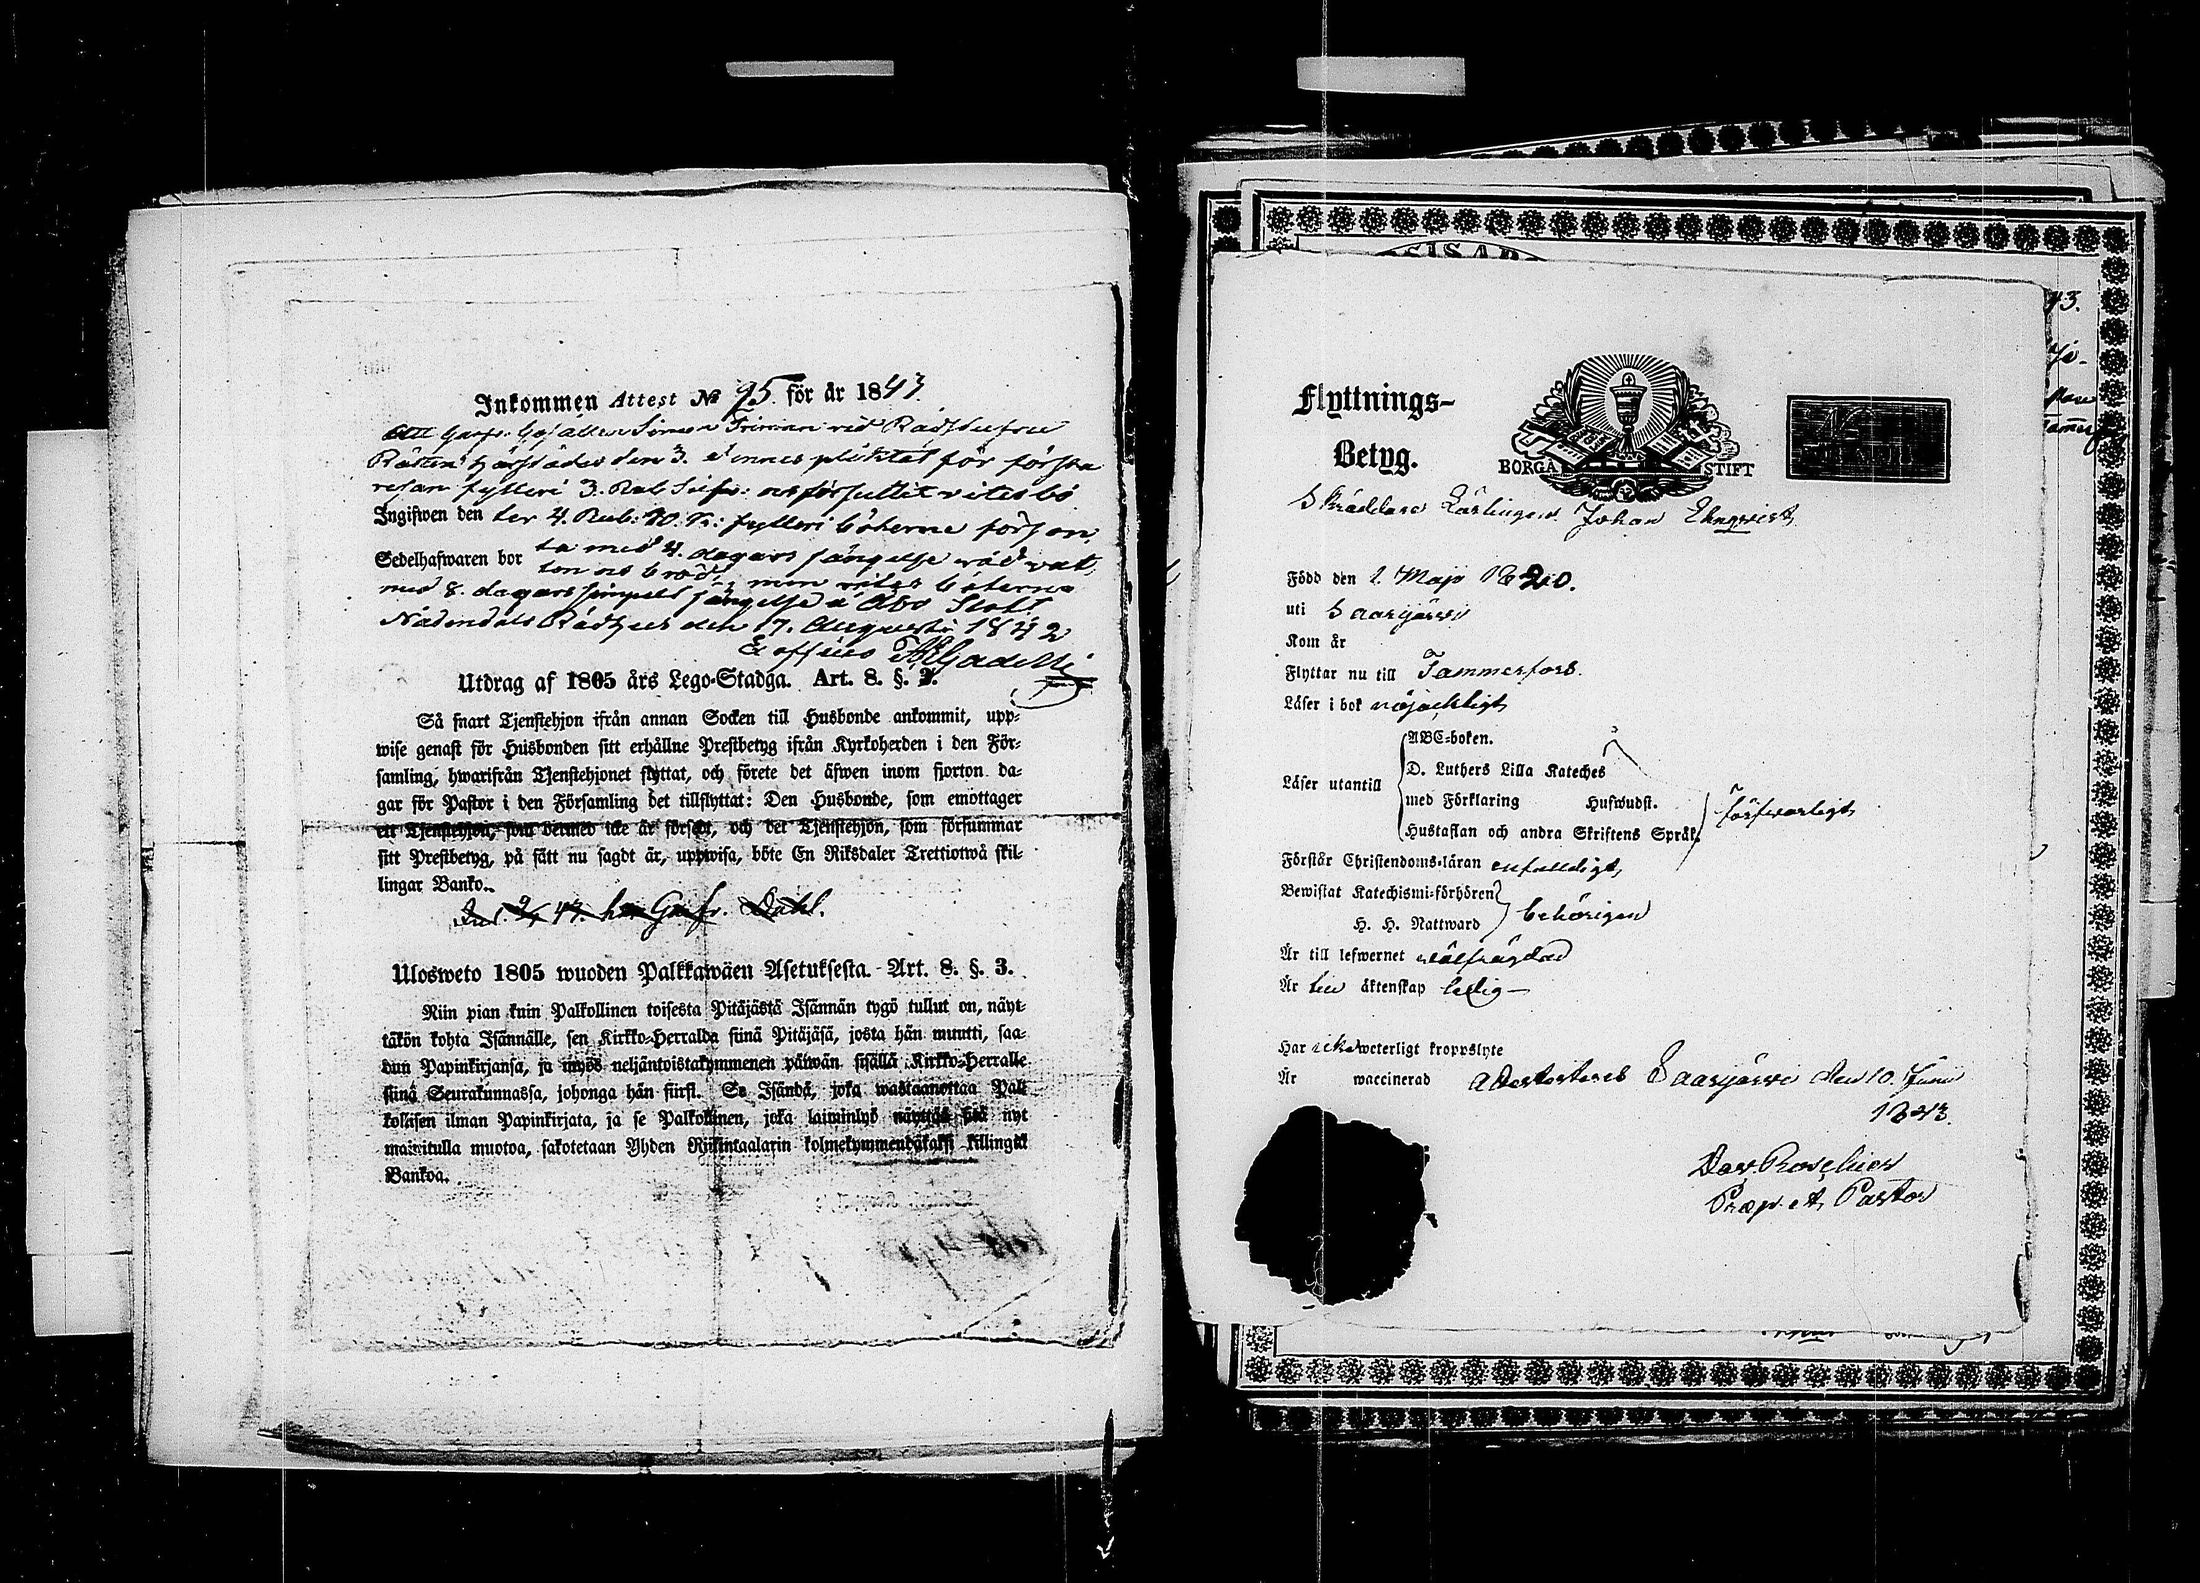 Inkommen Attest № 95 för år 1843
Att Garfv. Gesällen Simon Friman vid Rådstufvu
Rätten härstädes den 3. dennes pliktat för första
resan fylleri 3. Rub Silfv: och försuttit vitesbö
Ingifwen den ter 4. Rub: 40. K.: fylleri böterne förson
Sedelhafwaren bor te med 4. dagars fängelse vid vat
ten och bröd, men vites böterna
med 8. dagars simpelt fängelse å Åbo Slott
Nådendals Rådhus den 17. Augusti 1842
Ex officio
Utdrag af 1805 års Lego-Stadga. Art. 8. §. 3.
Så snart Tjenstehjon ifrån annan Socken till Husbonde ankommit, upp-
wise genast för Husbonden sitt erhållne Prestbetyg ifrån Kyrkoherden i den För-
samling, hwarifrån Tjenstehjonet flyttat, och förete det äfwen inom fjorton da-
gar för Pastor i den Församling det tillflyttat: Den Husbonde, som emottager
ett Tjenstehjon, som dermed icke är försedt, och det Tjenstehjon, som försummar
sitt Prestbetyg, på sätt nu sagdt är, uppwisa, böte En Riksdaler Trettiotwå skil-
lingar Banko.
Garfv. Dahl.
Ulosweto 1805 wuoden Palkkawäen Asetuksesta. Art. 8. §. 3.
Niin pian kuin Palkollinen toisesta Pitäjästä Isännän tygö tullut on, näyt-
täkön kohta Isännälle, sen Kirkko-Herralda siinä Pitäjäsä, josta hän muutti, saa-
dun Papinkirjansa, ja myös neljäntoistakymmenen päiwän sisällä Kirkko-Herralle
siinä Seurakunnassa, johonga hän siirsi. Se Isändä, joka wastaanottaa Pal-
kollisen ilman Papinkirjata, ja se Palkollinen, joka laiminlyö näyttää sitä nyt
mainitulla muotoa, sakotetaan Yhden Riikintaalarin kolmekymmendäkaksi killingiä
Bankoa.
Flyttnings-
Betyg.
BORGÅ STIFT
Skräddare Lärlingen Johan Ehnqvist
Född den 1. Maji 1820.
uti Saarijärvi
Kom år
Flyttar nu till Tammerfors.
Läser i bok nöjachligt
Läser utantill
ABC-boken.
D. Luthers Lilla Kateches
med Förklaring Hufwudst.
Hustaflan och andra Skriftens Språk
försvarligt
Förstår Christendoms-läran enfaldigt
Bewistat Katechismi-förhören
H. H. Nattward
behörigen
Är till lefwernet välfrägdad
Är till äktenskap ledig
Har icke weterligt kroppslyte
Är waccinerad Attesteras Saarijärvi den 10. Junii
1843.
Dav. Roschier
Præp. et Pastor
43.